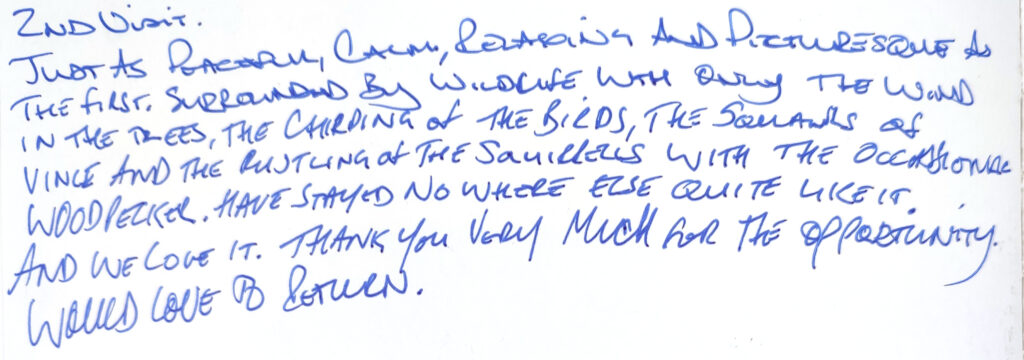 2ND VISIT.
JUST AS PEACEFUL, CALM, RELAXING AND PICTURESQUE AS
THE FIRST. SURROUNDED BY WILDLIFE WITH ONLY THE WIND
IN THE TREES, THE CHIRPING OF THE BIRDS, THE SQUAWKS OF
VINCE AND THE RUSTLING OF THE SQUIRRELS WITH THE OCCASSIONAL
WOODPECKER. HAVE STAYED NO WHERE ELSE QUITE LIKE IT.
AND WE LOVE IT. THANK YOU VERY MUCH FOR THE OPPORTUNITY.
WOULD LOVE TO RETURN.